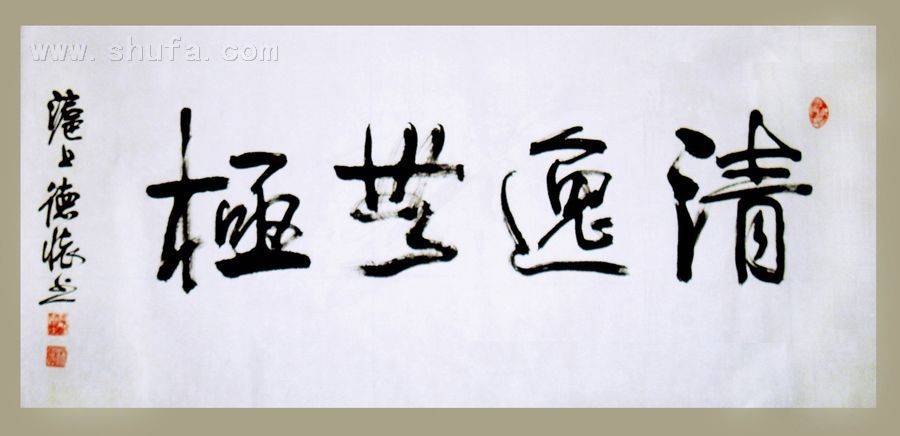 www.shufa.com
清逸無極
滬上德懷書